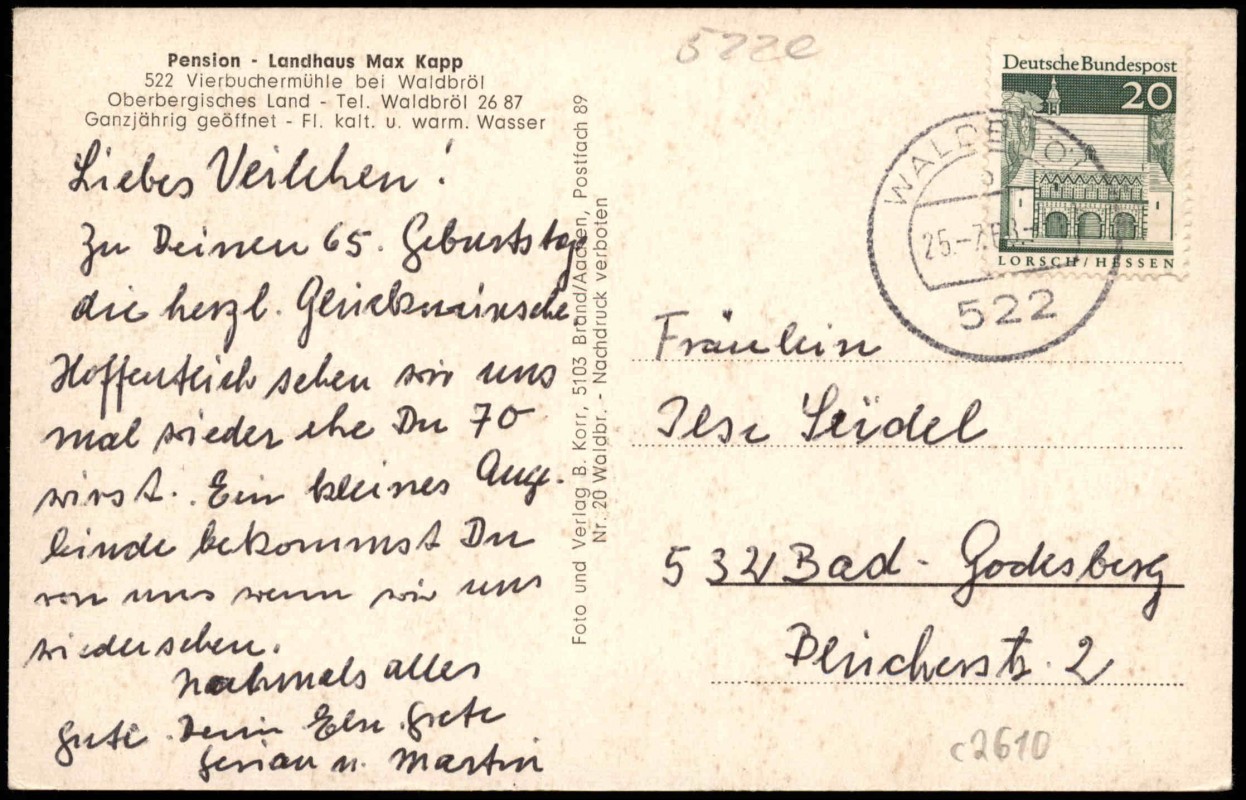 Pension - Landhaus Max Kapp
522 Vierbuchermühle bei Waldbröl
Oberbergisches Land - Tel. Waldbröl 26 87
Ganzjährig geöffnet - Fl. kalt. u. warm. Wasser
Liebes Veilchen!
Zu Deinen 65. Geburtstage
die herzl. Glückwünsche
Hoffentlich sehen wir uns
mal wieder ehe Du 70
wirst. Ein kleines Ange-
binde bekommst Du
von uns wenn wir uns
wiedersehen.
Nochmals alles
Gute Deine Else Grete
u. Martin
Foto und Verlag B. Korr, 5103 Brand/Aachen, Postfach 89
Nr. 20 Waldbr. - Nachdruck verboten
522e
Deutsche Bundespost
20
LORSCH/HESSEN
522
Fräulein
Ilse Seidel
532 Bad-Godesberg
Blücherstr. 2
c2610